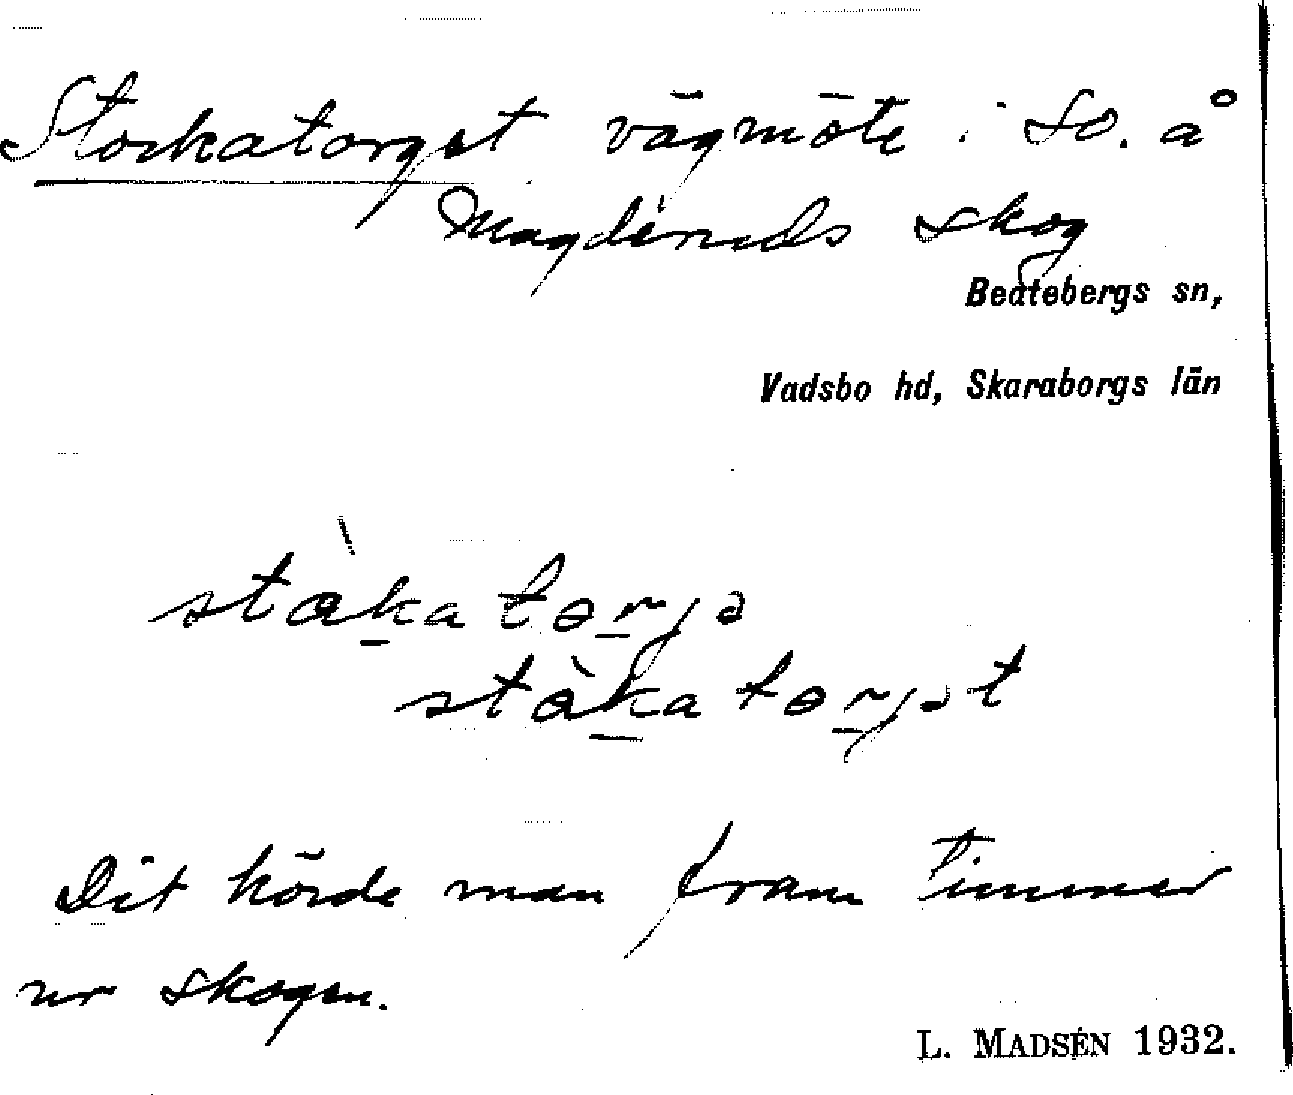 Stockatorget vägmöte i SO. å
Magderuds skog
Beatebergs sn,
Vadsbo hd, Skaraborgs län
ståka torjə
ståka torjət
Dit körde man fram timmer
ur skogen.
L. MADSÉN 1932.